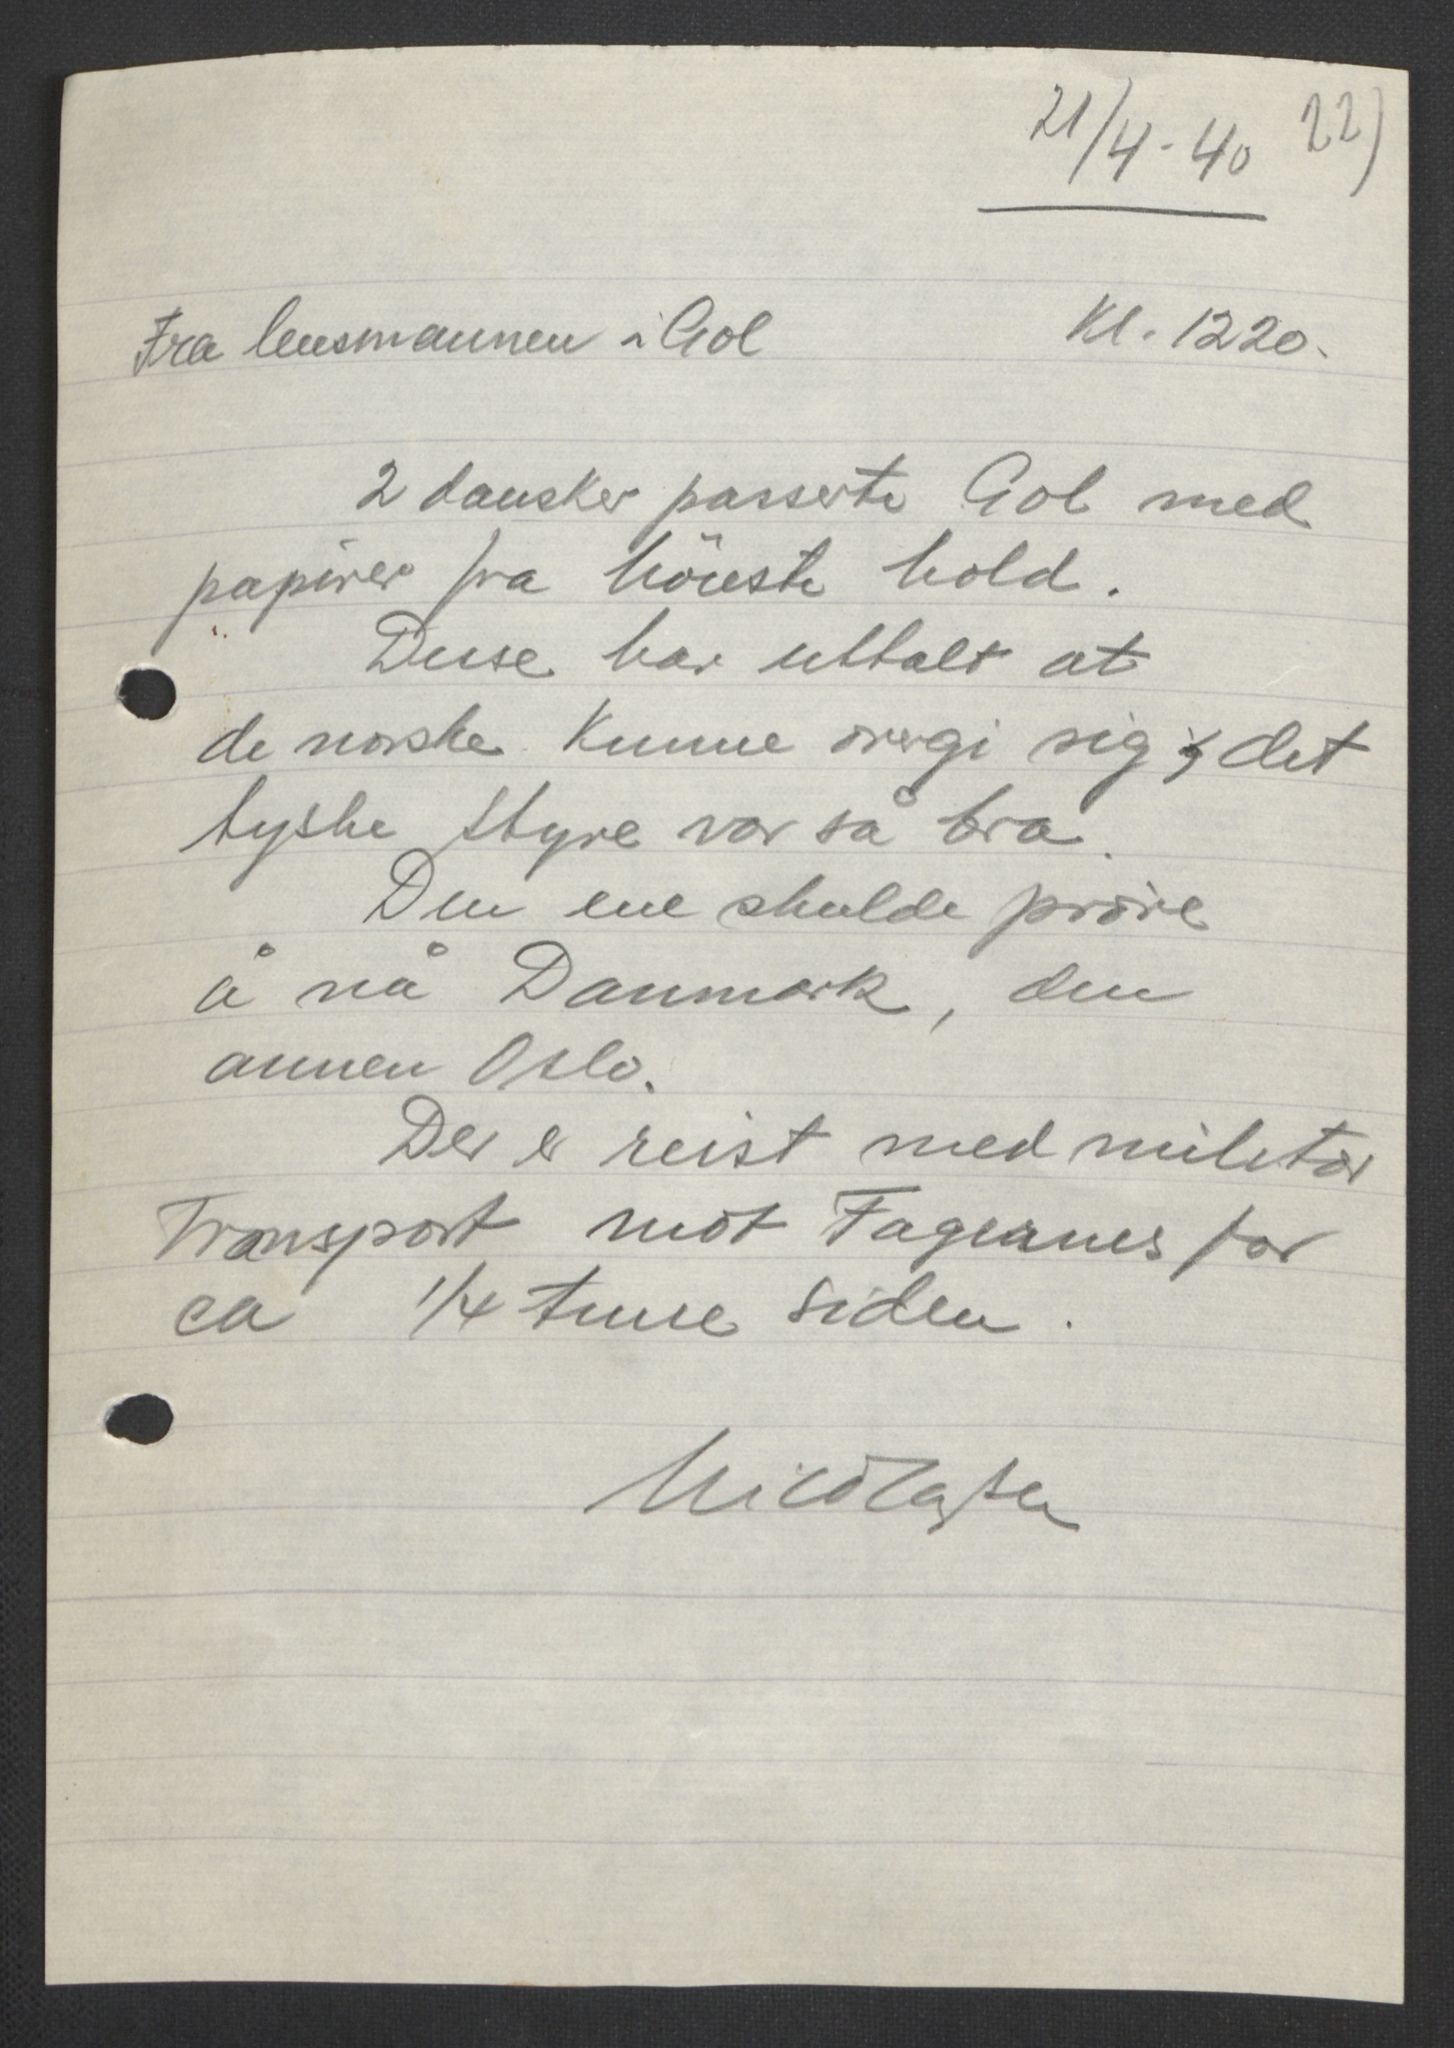 21/4-40 22)
Fra lensmannen i Gol Kl. 1220.
2 dansker passerte Gol med
papirer fra höieste hold.
Disse har uttalt at
de norske kunne overgi sig, det
tyske styre var så bra.
Den ene skulde pröve
å nå Danmark, den
annen Oslo.
De er reist med militær
Transport mot Fagernes for
ca 1/4 time siden.
Nicolaysen